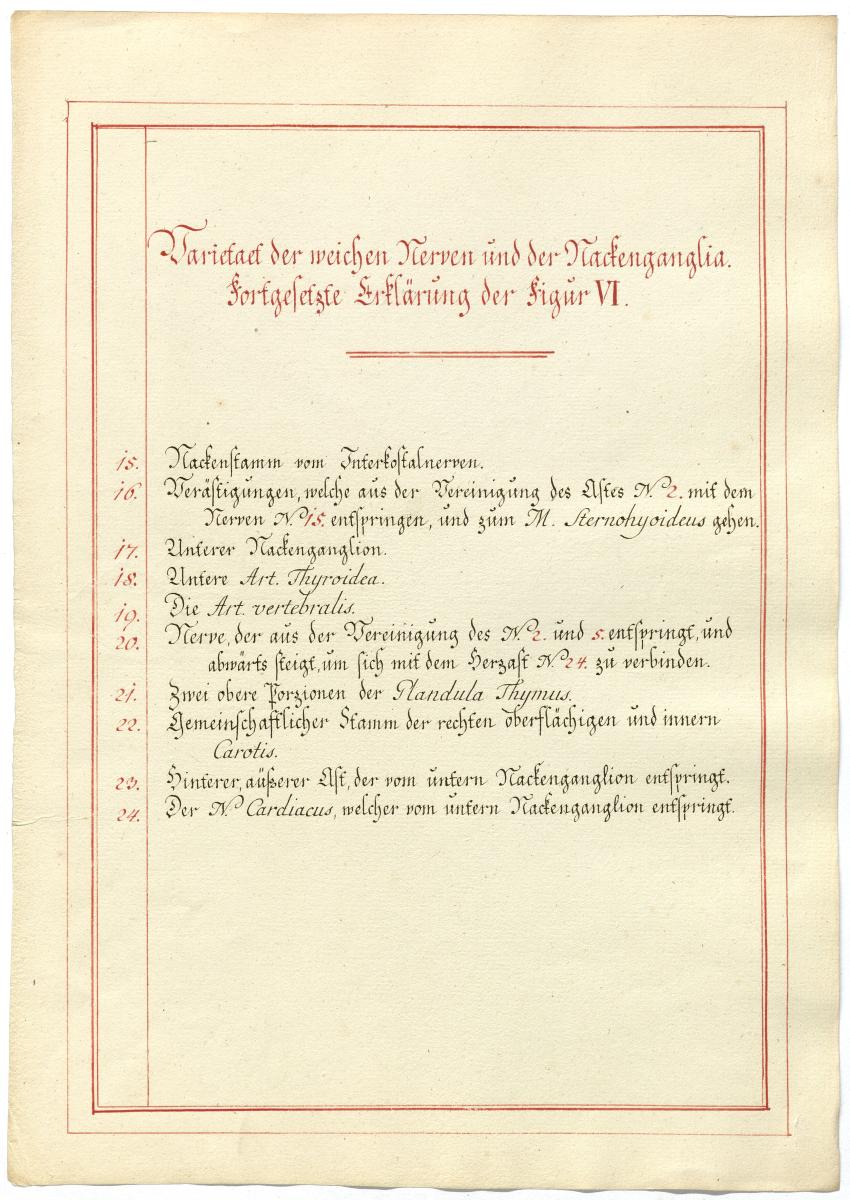 Varietaet der weichen Nerven und der Nackenganglia.
Fortgesetzte Erklärung der Figur VI.
15. Nackenstamm vom Interkostalnerven.
16. Verästigungen, welche aus der Vereinigung des Astes N.º 2. mit dem
Nerven N.º 15. entspringen, und zum M. Sternohyoideus gehen.
17. Unterer Nackenganglion.
18. Untere Art. Thyroidea.
19. Die Art. vertebralis.
20. Nerve, der aus der Vereinigung des N.º 2. und 5. entspringt, und
abwärts steigt, um sich mit dem Herzast N.º 24. zu verbinden.
21. Zwei obere Porzionen der Glandula Thymus.
22. Gemeinschaftlicher Stamm der rechten oberflächigen und innern
Carotis.
23. Hinterer, äußerer Ast, der vom untern Nackenganglion entspringt.
24. Der N. Cardiacus, welcher vom untern Nackenganglion entspringt.